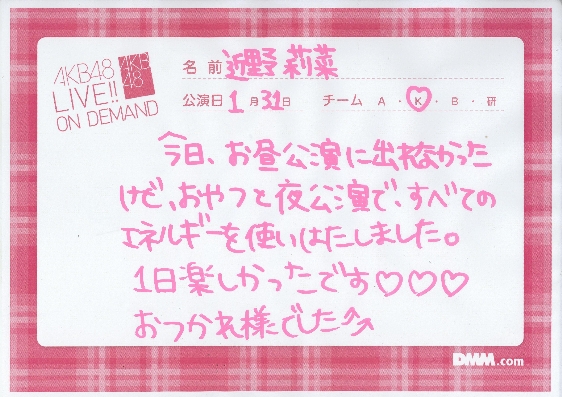 AKB48
LIVE!!
ON DEMAND
AKB
48
名前 近野莉菜
公演日 1月31日 チーム A・K・B・研
今日、お昼公演に出れなかった
けど、おやつと夜公演で、すべての
エネルギーを使いはたしました。
1日楽しかったです♡♡♡
おつかれ様でした^^
DMM.com